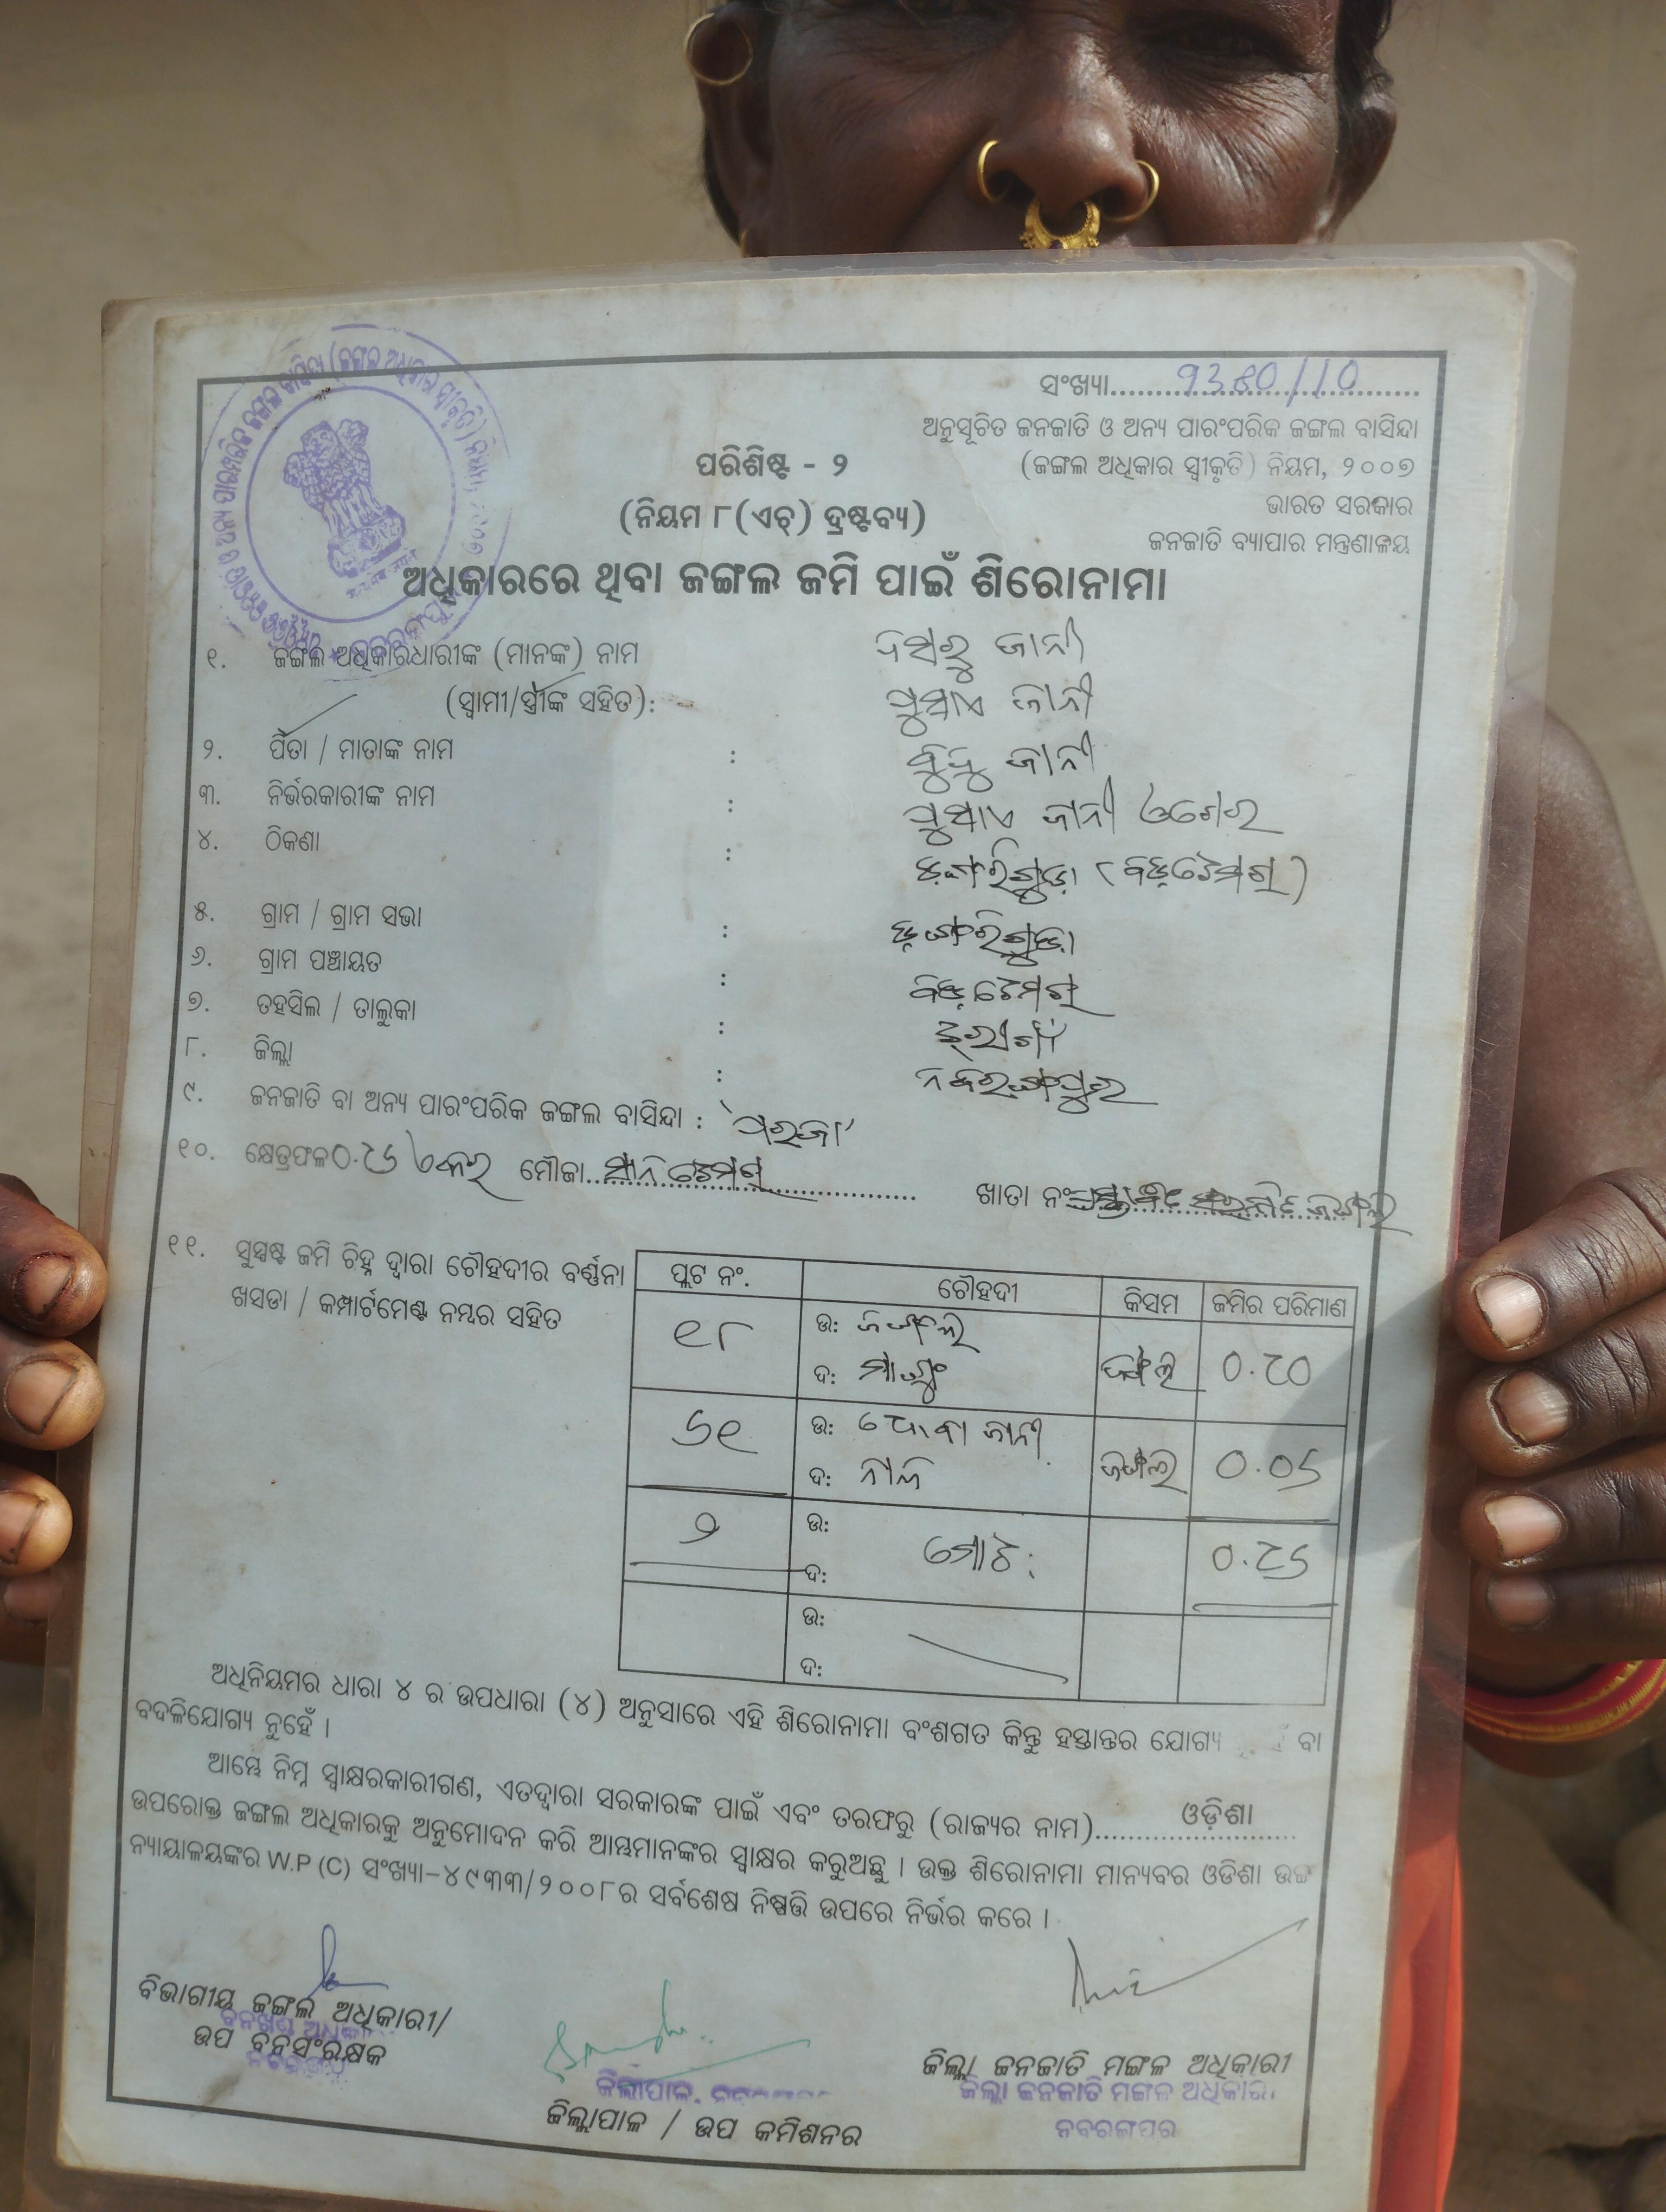 ସଂଖ୍ୟା
ଅନୁସୂଚିତ ଜନଜାତି ଓ ଅନ୍ୟ ପାରଂପରିକ ଜଙ୍ଗଲ ବାସିନ୍ଦା
(ଜଙ୍ଗଲ ଅଧିକାର ସ୍ୱୀକୃତି) ନିୟମ, ୨୦୦୭
ଭାରତ ସରକାର
ଜନଜାତି ବ୍ୟାପାର ମନ୍ତ୍ରଣାଳୟ
ପରିଶିଷ୍ଟ - ୨
(ନିୟମ ୮(ଏଚ୍) ଦ୍ରଷ୍ଟବ୍ୟ)
ଅଧିକାରରେ ଥିବା ଜଙ୍ଗଲ ଜମି ପାଇଁ ଶିରୋନାମା
୧. ଜଙ୍ଗଲ ଅଧିକାରଧାରୀଙ୍କ (ମାନଙ୍କ) ନାମ ଜାନୀ
(ସ୍ୱାମୀ/ସ୍ତ୍ରୀଙ୍କ ସହିତ): ଜାନୀ
୨. ପିତା / ମାତାଙ୍କ ନାମ : ଜାନୀ
୩. ନିର୍ଭରକାରୀଙ୍କ ନାମ : ଜାନୀ
୪. ଠିକଣା :
୫. ଗ୍ରାମ / ଗ୍ରାମ ସଭା :
୬. ଗ୍ରାମ ପଞ୍ଚାୟତ :
୭. ତହସିଲ / ତାଲୁକା :
୮. ଜିଲ୍ଲା : ନବରଙ୍ଗପୁର
୯. ଜନଜାତି ବା ଅନ୍ୟ ପାରଂପରିକ ଜଙ୍ଗଲ ବାସିନ୍ଦା : ପରଜା
୧୦. କ୍ଷେତ୍ରଫଳ ୦.୧୬ ଏକର ମୌଜା ଖାତା ନଂ
୧୧. ସୁସ୍ପଷ୍ଟ ଜମି ଚିହ୍ନ ଦ୍ୱାରା ଚୌହଦୀର ବର୍ଣ୍ଣନା
ଖସଡା / କମ୍ପାର୍ଟମେଣ୍ଟ ନମ୍ବର ସହିତ
ପ୍ଲଟ ନଂ. ଚୌହଦୀ କିସମ ଜମିର ପରିମାଣ
ଉ: ଜଙ୍ଗଲ
ଦ: ଜଙ୍ଗଲ ୦.୧୦
ଉ: ଜାନୀ
ଦ: ଜଙ୍ଗଲ ୦.୦୬
୨ ଉ:
ଦ: ମୋଟ: ୦.୧୬
ଉ:
ଦ:
ଅଧିନିୟମର ଧାରା ୪ ର ଉପଧାରା (୪) ଅନୁସାରେ ଏହି ଶିରୋନାମା ବଂଶଗତ କିନ୍ତୁ ହସ୍ତାନ୍ତର ଯୋଗ୍ୟ ବା
ବଦଳିଯୋଗ୍ୟ ନୁହେଁ ।
ଆମ୍ଭେ ନିମ୍ନ ସ୍ୱାକ୍ଷରକାରୀଗଣ, ଏତଦ୍ୱାରା ସରକାରଙ୍କ ପାଇଁ ଏବଂ ତରଫରୁ (ରାଜ୍ୟର ନାମ) ଓଡ଼ିଶା
ଉପରୋକ୍ତ ଜଙ୍ଗଲ ଅଧିକାରକୁ ଅନୁମୋଦନ କରି ଆମ୍ଭମାନଙ୍କର ସ୍ୱାକ୍ଷର କରୁଅଛୁ । ଉକ୍ତ ଶିରୋନାମା ମାନ୍ୟବର ଓଡିଶା ଉଚ୍ଚ
ନ୍ୟାୟାଳୟଙ୍କର W.P (C) ସଂଖ୍ୟା-୪୯୩୩/୨୦୦୮ର ସର୍ବଶେଷ ନିଷ୍ପତ୍ତି ଉପରେ ନିର୍ଭର କରେ ।
ବିଭାଗୀୟ ଜଙ୍ଗଲ ଅଧିକାରୀ/
ଉପ ବନସଂରକ୍ଷକ
ଜିଲ୍ଲାପାଳ
ଜିଲ୍ଲାପାଳ / ଉପ କମିଶନର
ଜିଲ୍ଲା ଜନଜାତି ମଙ୍ଗଳ ଅଧିକାରୀ
ଜିଲ୍ଲା ଜନଜାତି ମଙ୍ଗଳ ଅଧିକାରୀ
ନବରଙ୍ଗପୁର